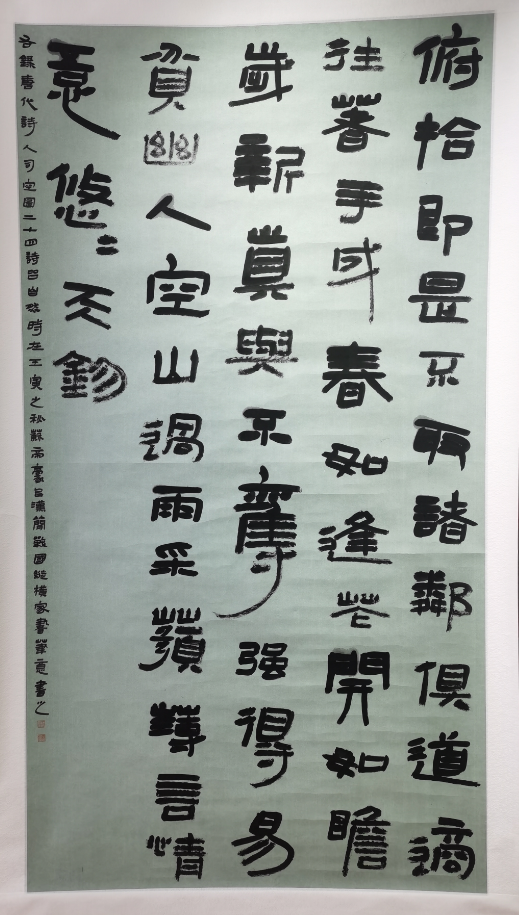 俯拾即是不取諸鄰俱道適
往著手成春如逢花開如瞻
歲新真與不奪强得易
貧幽人空山過雨采蘋薄言情
悟悠〻天鈞
右錄唐代詩人司空圖二十四詩品自然時在壬寅之秋蘇豪以漢簡戰國縱橫家書筆意書之